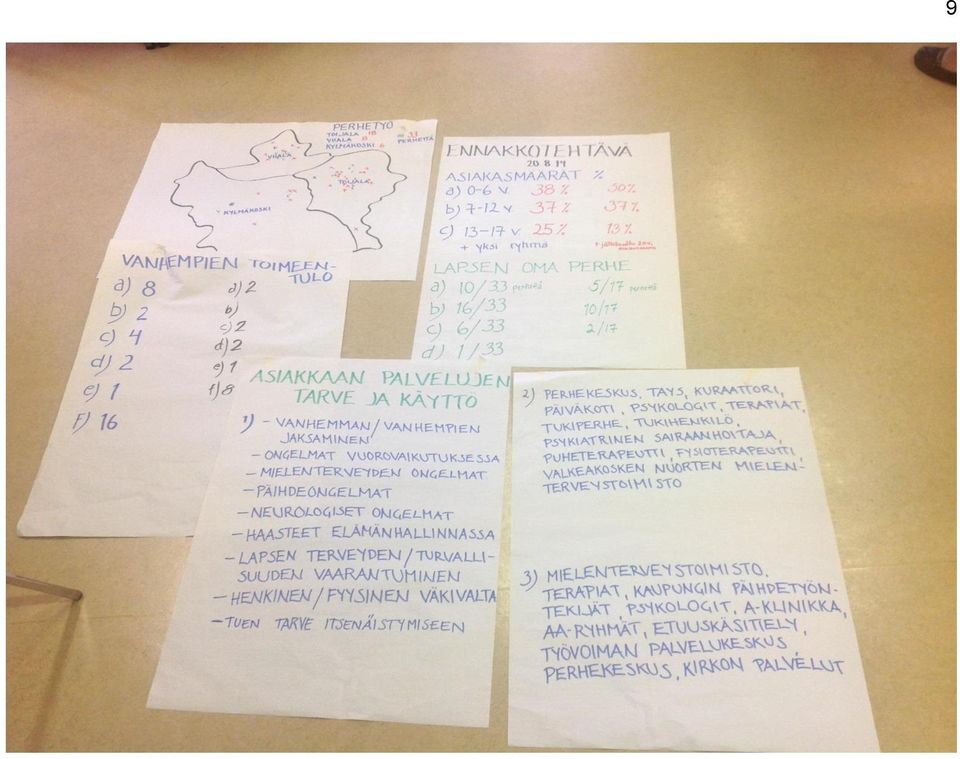 9
PERHETYÖ
TOIJALA 18
VIIALA 9
KYLMÄKOSKI 6
= 33 PERHETTÄ
VIIALA
TOIJALA
KYLMÄKOSKI
ENNAKKOTEHTÄVÄ
20.8.14
ASIAKASMÄÄRÄT %
a) 0-6 v. 38 % 50%
b) 7-12 v. 37 % 37%
c) 13-17 v. 25 % 13%
+ yksi ryhmä
LAPSEN OMA PERHE
a) 10/33 perhettä 5/17 perhettä
b) 16/33 10/17
c) 6/33 2/17
d) 1/33
VANHEMPIEN TOIMEEN-
TULO
a) 8 a) 2
b) 2 b)
c) 4 c) 2
d) 2 d) 2
e) 1 e) 1
F) 16 f) 8
ASIAKKAAN PALVELUJEN
TARVE JA KÄYTTÖ
1) - VANHEMMAN/VANHEMPIEN
JAKSAMINEN
- ONGELMAT VUOROVAIKUTUKSESSA
- MIELENTERVEYDEN ONGELMAT
- PÄIHDEONGELMAT
- NEUROLOGISET ONGELMAT
- HAASTEET ELÄMÄNHALLINNASSA
- LAPSEN TERVEYDEN/TURVALLI-
SUUDEN VAARANTUMINEN
- HENKINEN/FYYSINEN VÄKIVALTA
- TUEN TARVE ITSENÄISTYMISEEN
2) PERHEKESKUS, TAYS, KURAATTORI,
PÄIVÄKOTI, PSYKOLOGIT, TERAPIAT,
TUKIPERHE, TUKIHENKILÖ,
PSYKIATRINEN SAIRAANHOITAJA,
PUHETERAPEUTTI, FYSIOTERAPEUTTI,
VALKEAKOSKEN NUORTEN MIELEN-
TERVEYSTOIMISTO
3) MIELENTERVEYSTOIMISTO,
TERAPIAT, KAUPUNGIN PÄIHDETYÖN-
TEKIJÄT, PSYKOLOGIT, A-KLINIKKA,
AA-RYHMÄT, ETUUSKÄSITTELY,
TYÖVOIMAN PALVELUKESKUS,
PERHEKESKUS, KIRKON PALVELUT